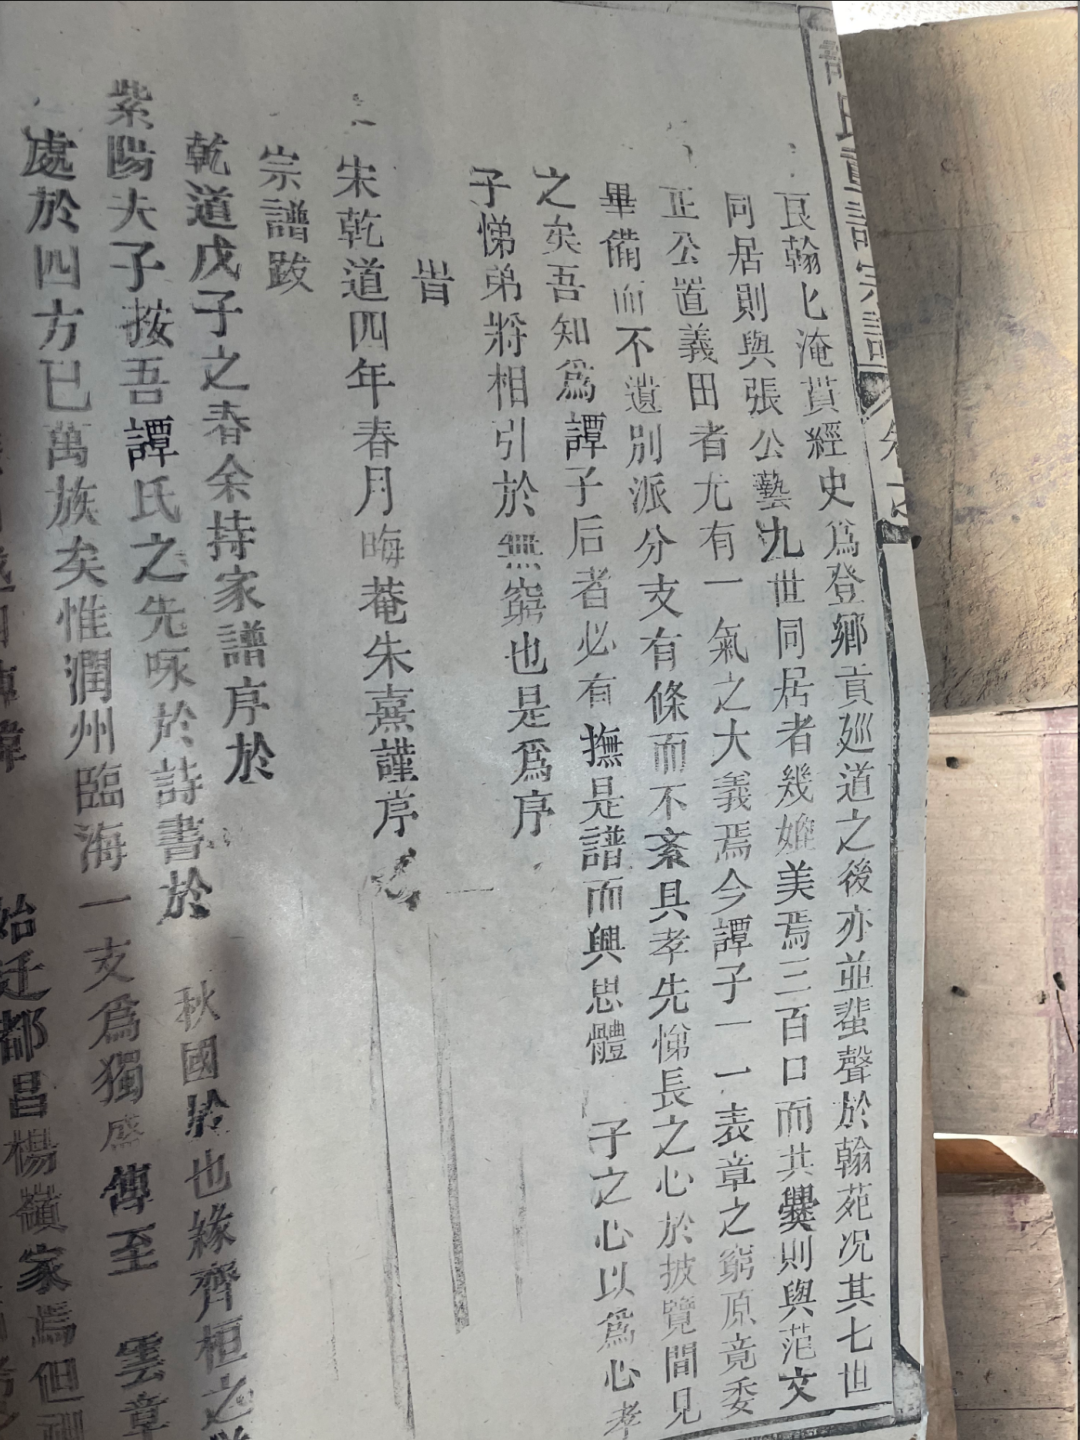 氏重譜宗譜
良翰匕淹貫經史爲登鄉貢廵道之後亦並蜚聲於翰苑况其七世
同居則與張公藝九世同居者幾媲美焉三百口而共爨則與范文
正公置義田者尤有一氣之大義焉今譚子一一表章之窮原竟委
畢備而不遺別派分支有條而不紊具孝先悌長之心於披覽間見
之矣吾知爲譚子后者必有撫是譜而興思體 子之心以爲心孝
子悌弟將相引於無窮也是爲序
旹
宋乾道四年春月晦菴朱熹謹序
宗譜跋
乾道戊子之春余持家譜序於
紫陽夫子按吾譚氏之先咏於詩書於 秋國於也緣齊桓之
處於四方已萬族矣惟潤州臨海一支爲獨盛傳至 雲章
始迁都昌楊嶺家焉但